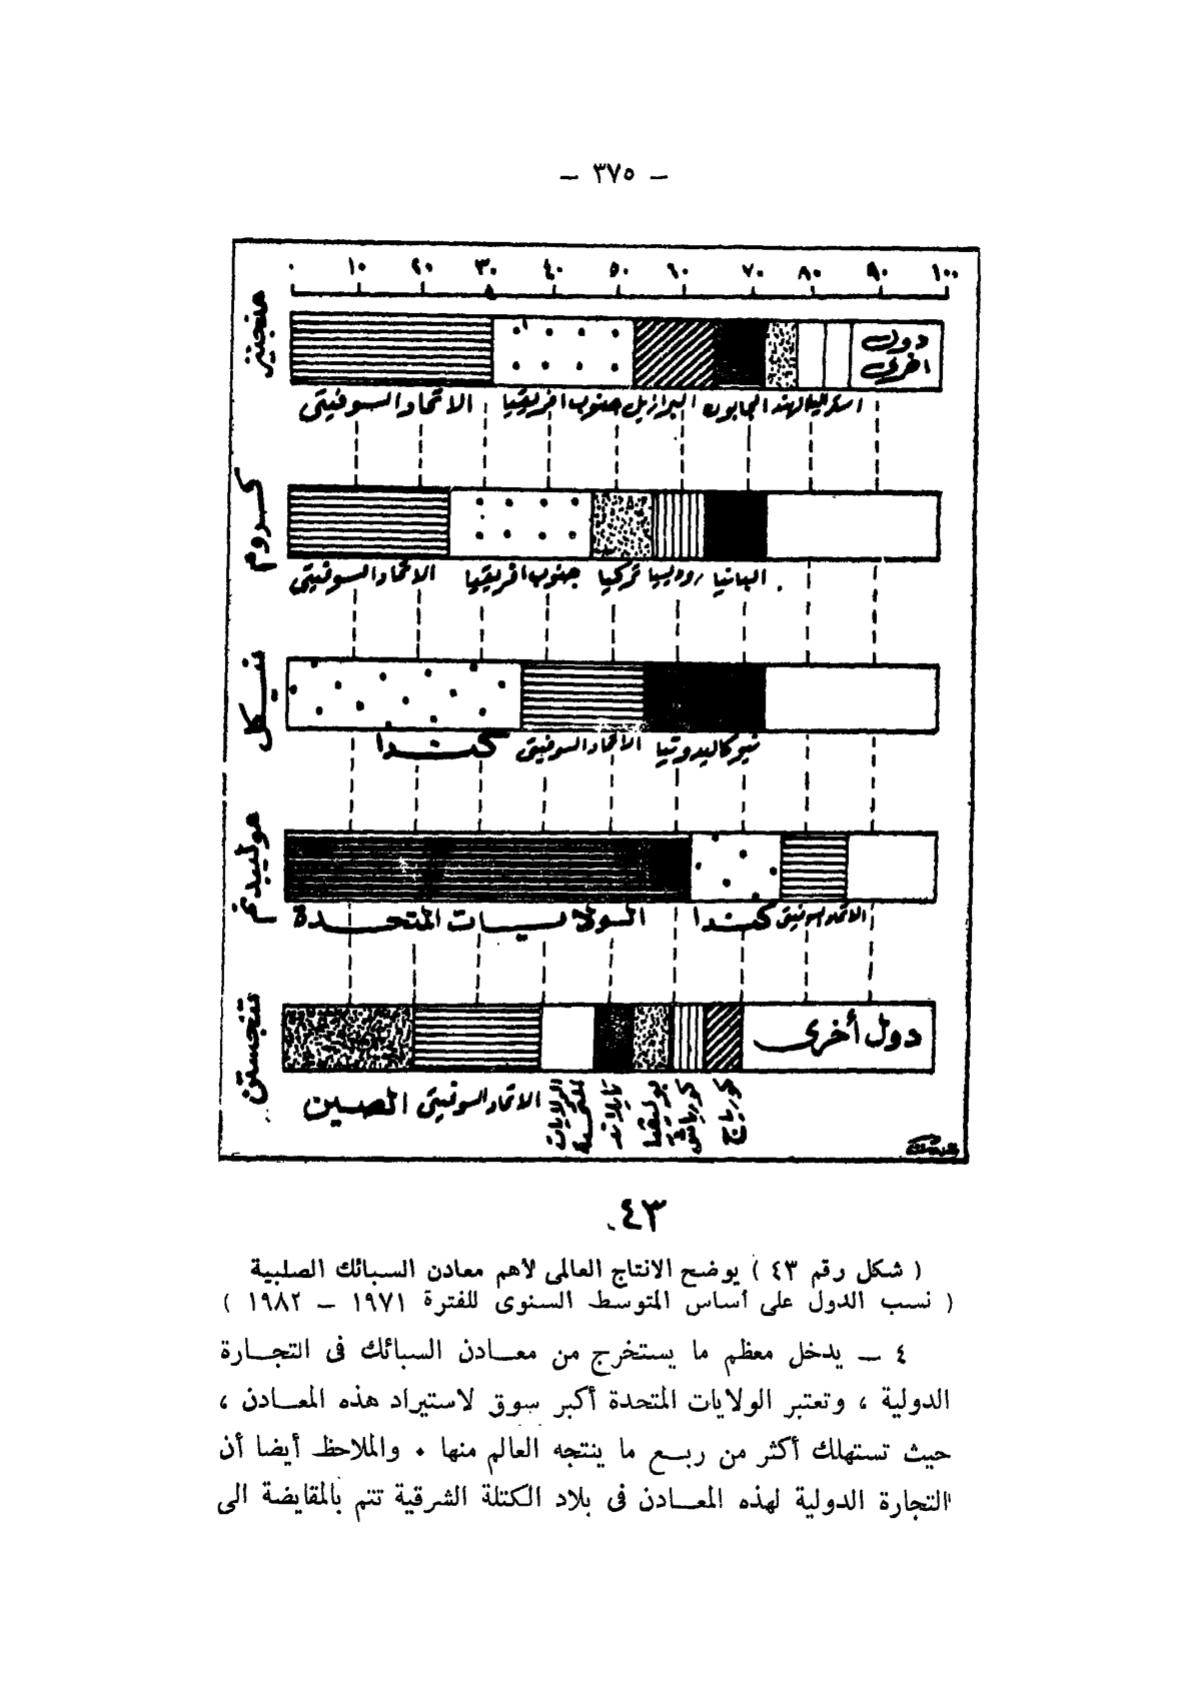 — ٣٧٥ —
٠ ١٠ ٢٠ ٣٠ ٤٠ ٥٠ ٦٠ ٧٠ ٨٠ ٩٠ ١٠٠
منجنيز
دول أخرى
الاتحاد السوفيتى جنوب افريقيا البرازيل الجابون الهند استراليا
كروم
الاتحاد السوفيتى جنوب افريقيا تركيا روديسيا البانيا
نيكل
كندا الاتحاد السوفيتى نيوكاليدونيا
موليبدنم
الولايات المتحدة كندا الاتحاد السوفيتى
تنجستن
دول أخرى
الصين الاتحاد السوفيتى الولايات المتحدة تايلاند بوليفيا كوريا ش كوريا ج
٤٣
( شكل رقم ٤٣ ) يوضح الانتاج العالمى لأهم معادن السبائك الصلبية
( نسب الدول على أساس المتوسط السنوى للفترة ١٩٧١ – ١٩٨٢ )
٤ — يدخل معظم ما يستخرج من معادن السبائك فى التجارة
الدولية ، وتعتبر الولايات المتحدة أكبر سوق لاستيراد هذه المعادن ،
حيث تستهلك أكثر من ربع ما ينتجه العالم منها . والملاحظ أيضا أن
التجارة الدولية لهذه المعادن فى بلاد الكتلة الشرقية تتم بالمقايضة الى